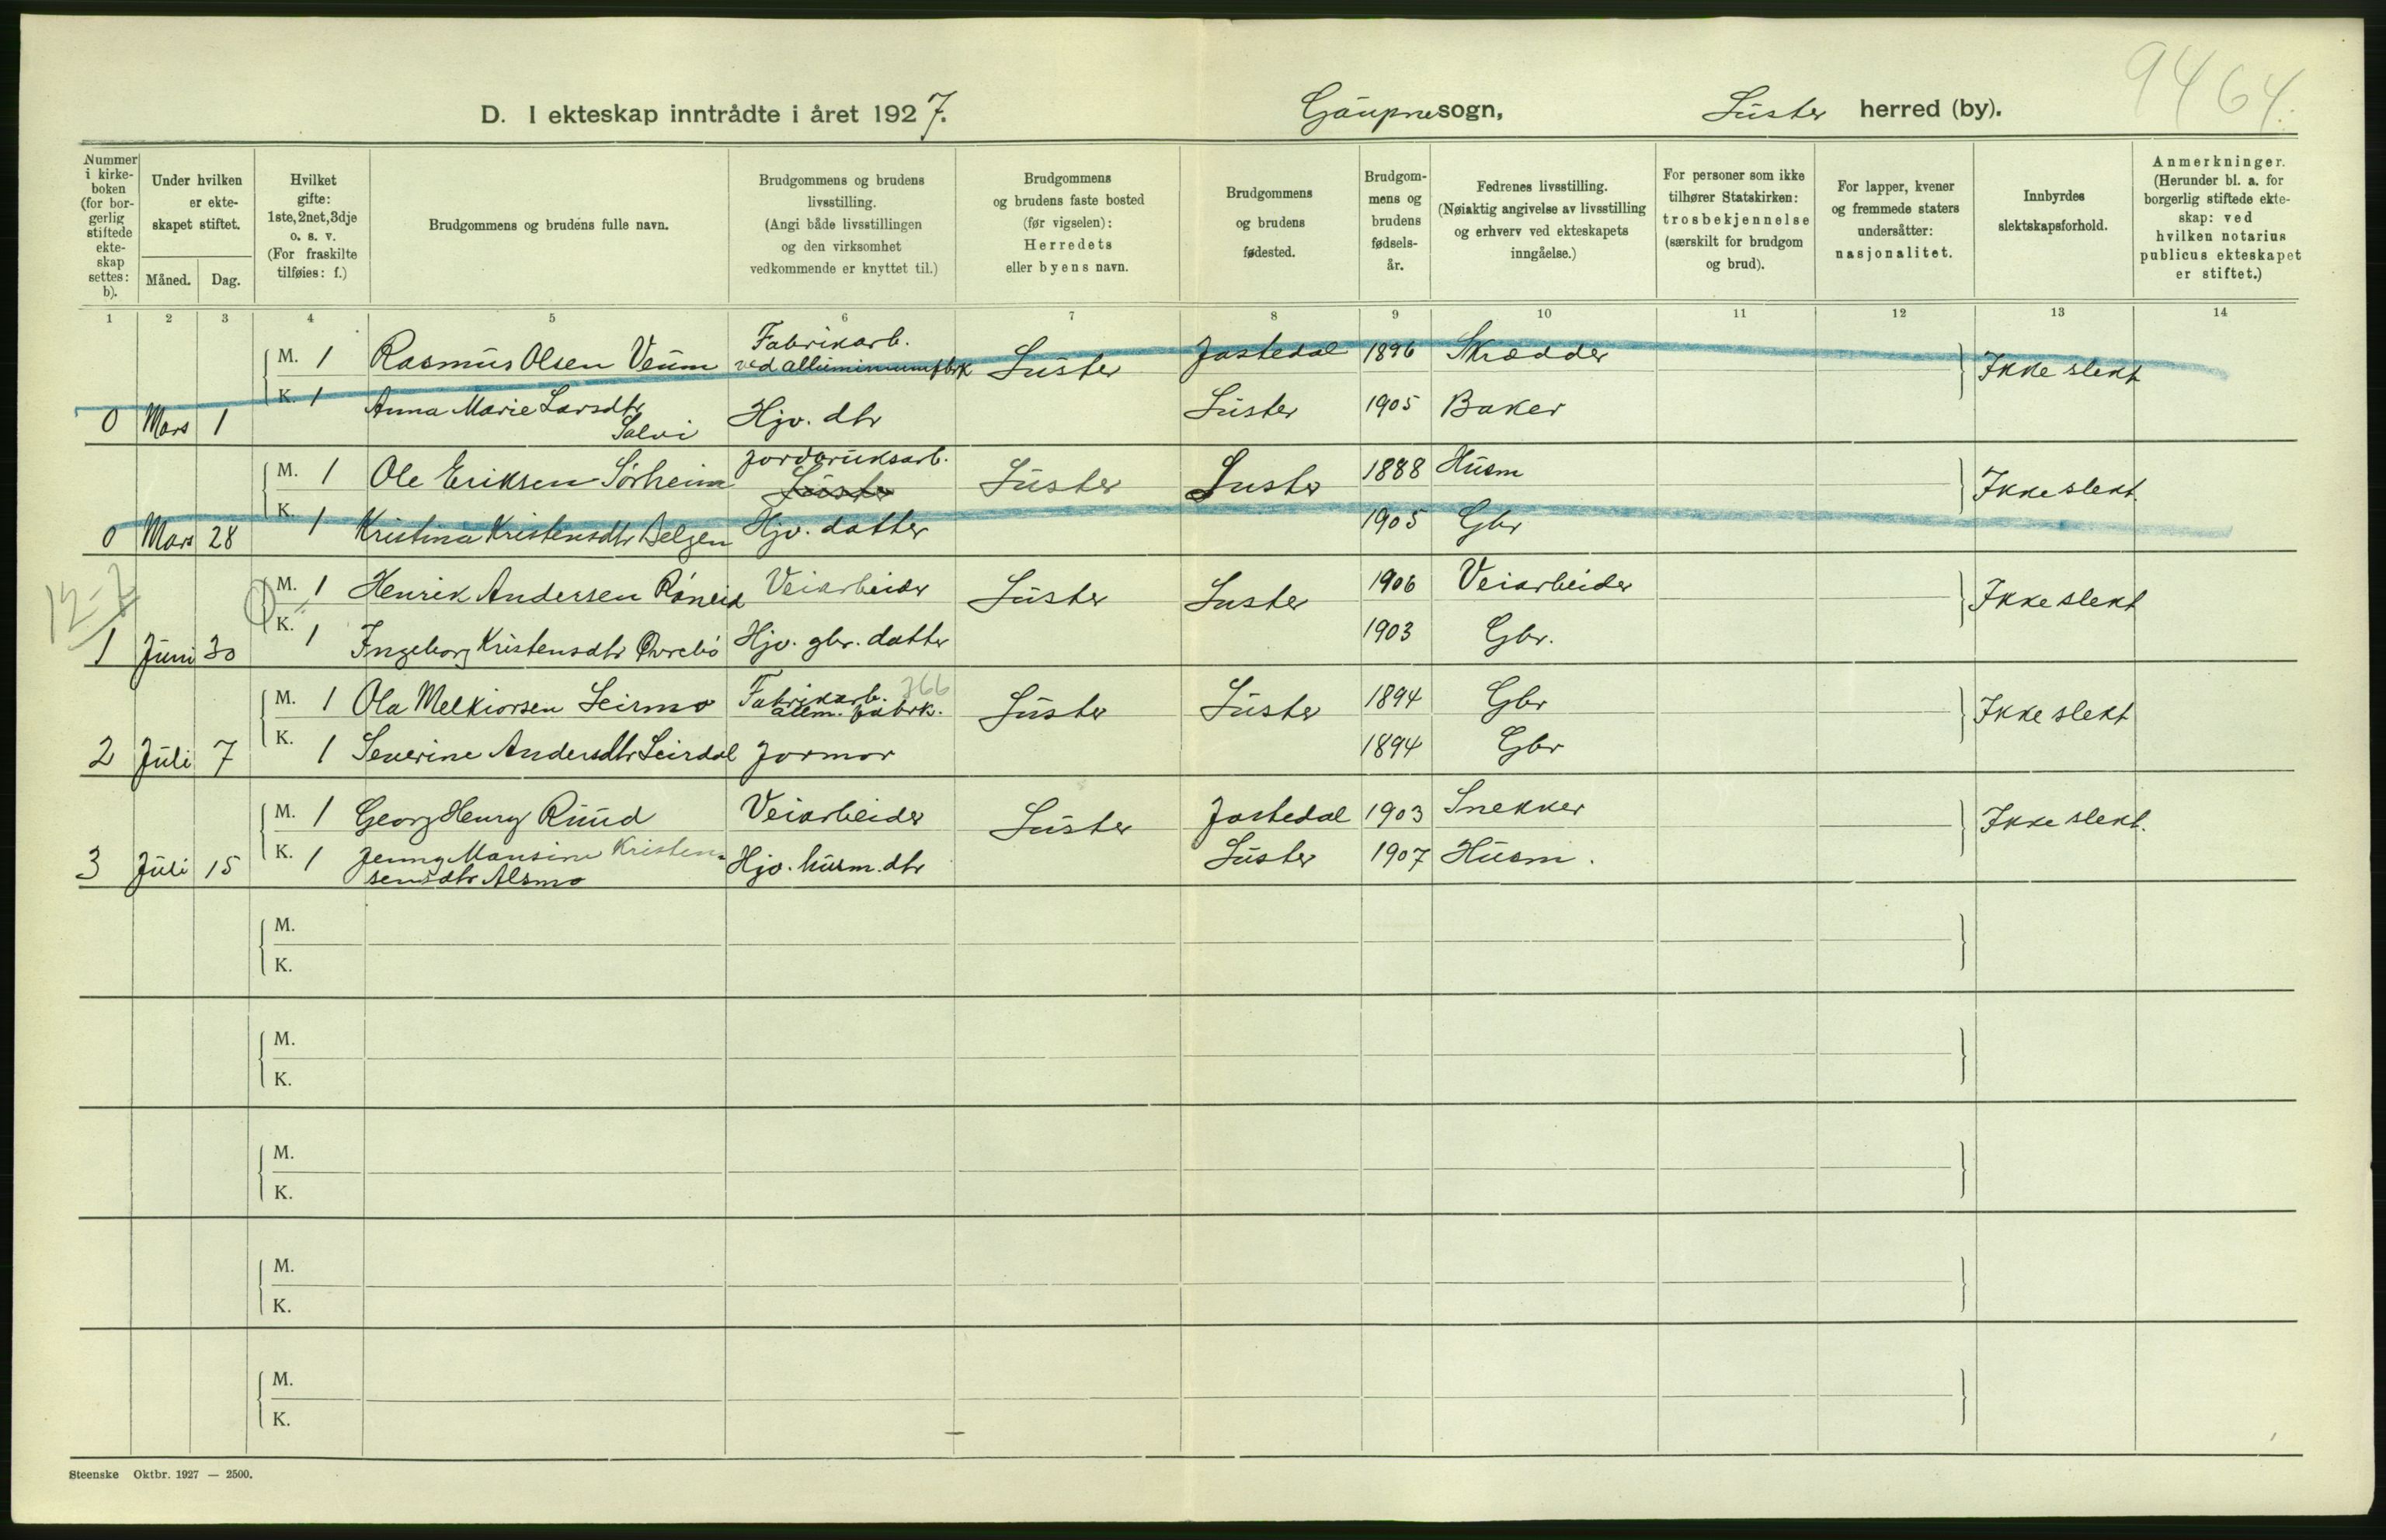 9464.
D. I ekteskap inntrådte i året 1927. Gaupne sogn, Luster herred (by).
Nummer i kirke- boken (for bor- gerlig stiftede ekte- skap settes: b).
Under hvilken er ekte- skapet stiftet.
Måned. Dag.
Hvilket gifte: 1ste, 2net, 3dje o. s. v. (For fraskilte tilføies: f.)
Brudgommens og brudens fulle navn.
Brudgommens og brudens livsstilling. (Angi både livsstillingen og den virksomhet vedkommende er knyttet til.)
Brudgommens og brudens faste bosted (før vigselen): Herredets eller byens navn.
Brudgommens og brudens fødested.
Brudgom- mens og brudens fødsels- år.
Fedrenes livsstilling. (Nøiaktig angivelse av livsstilling og erhverv ved ekteskapets inngåelse.)
For personer som ikke tilhører Statskirken: trosbekjennelse (særskilt for brudgom og brud).
For lapper, kvener og fremmede staters undersåtter: nasjonalitet.
Innbyrdes slektskapsforhold.
Anmerkninger. (Herunder bl. a. for borgerlig stiftede ekte- skap: ved hvilken notarius publicus ekteskapet er stiftet.)
1 2 3 4 5 6 7 8 9 10 11 12 13 14
M. 1 Rasmus Olsen Veum Fabrikarb. ved alluminiumfbrk Luster Jostedal 1896 Skrædder Ikke slekt
0 Mars 1 K. 1 Anna Marie Larsdtr Salvi Hjv. dtr Luster 1905 Baker
M. 1 Ole Eriksen Sørheim Jordbruksarb. Luster Luster Luster 1888 Husm Ikke slekt
0 Mars 28 K. 1 Kristina Kristensdtr Hjv. datter 1905 Gbr
12-7
M. 1 Henrik Andersen Røneid Veiarbeider Luster Luster 1906 Veiarbeider Ikke slekt
1 Juni 30 K. 1 Ingeborg Kristensdtr Øvrebø Hjv. gbr. datter 1903 Gbr.
M. 1 Ola Melkiorsen Leirmo Fabrikarb. alem. fabrk. 766 Luster Luster 1894 Gbr Ikke slekt
2 Juli 7 K. 1 Severine Andersdtr Leirdal Jormor 1894 Gbr
M. 1 Georg Henry Ruud Veiarbeider Luster Jostedal 1903 Snekker Ikke slekt.
3 Juli 15 K. 1 Jenny Mansine Kristen- sensdtr Alsmo Hjv. husm. dtr Luster 1907 Husm.
M.
K.
M.
K.
M.
K.
M.
K.
M.
K.
Steenske Oktbr. 1927 — 2500.